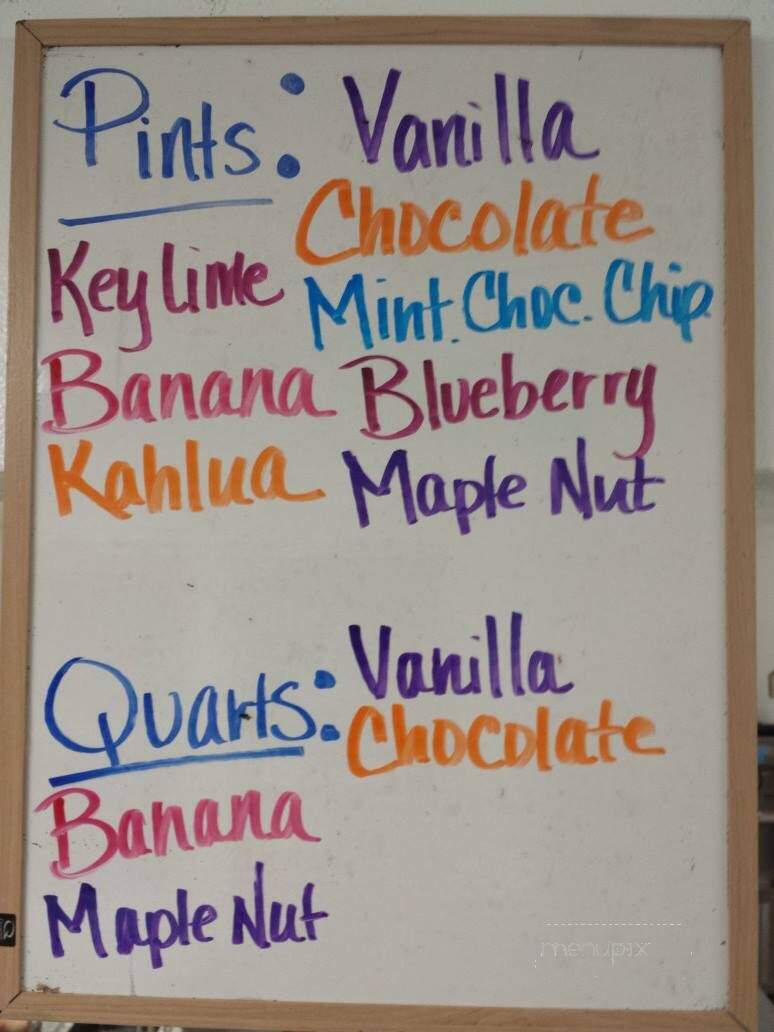 Pints: Vanilla
Chocolate
Key Lime Mint. Choc. Chip
Banana Blueberry
Kahlua Maple Nut
Quarts: Vanilla
Chocolate
Banana
Maple Nut
menupix